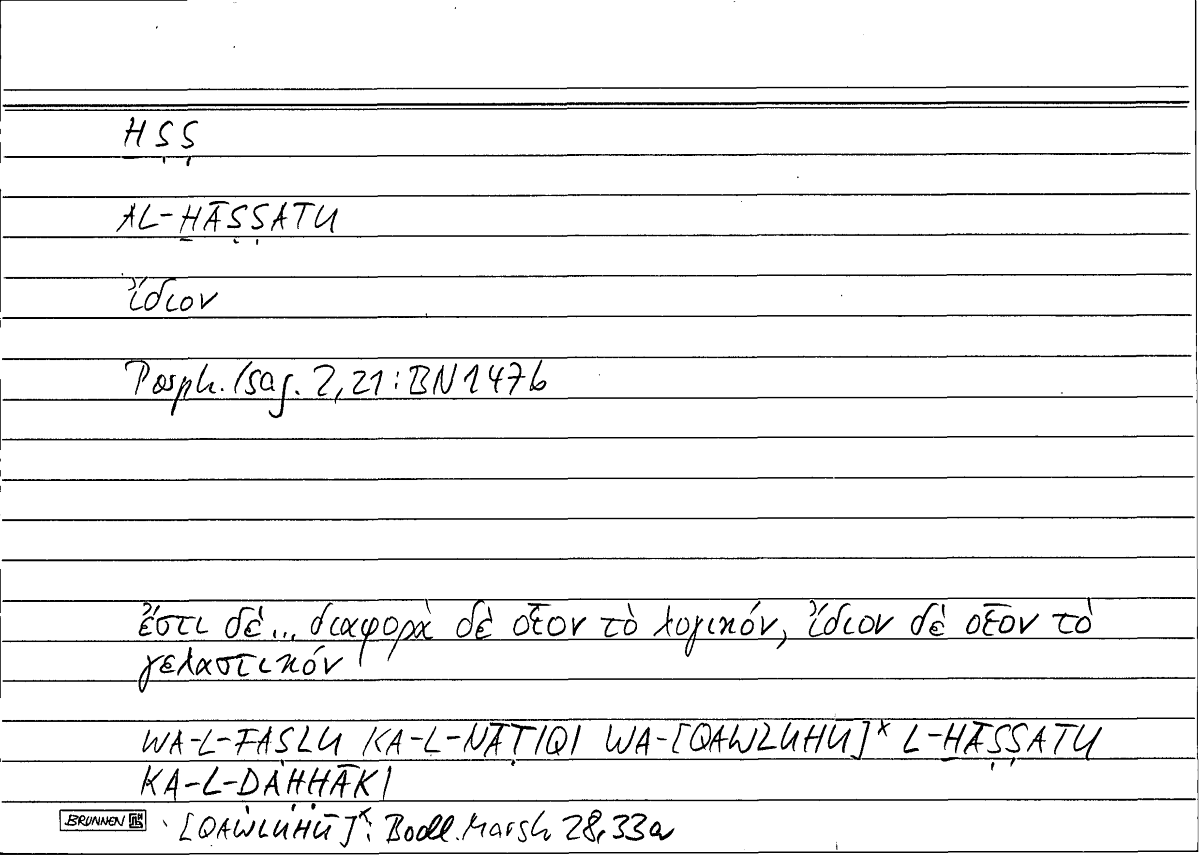 ḪṢṢ
AL-ḪĀṢṢATU
ἴδιον
Porph. Isag. 2,21: BN 147b
ἔστι δέ... διαφορὰ δὲ οἷον τὸ λογικόν, ἴδιον δὲ οἷον τὸ
γελαστικόν
WA-L-FAṢLU KA-L-NĀṬIQI WA-[QAWLUHŪ]* L-ḪĀṢṢATU
KA-L-ḌAḤḤĀKI
BRUNNEN
[QAWLUHŪ]*: Bodl. Marsh 28,33a